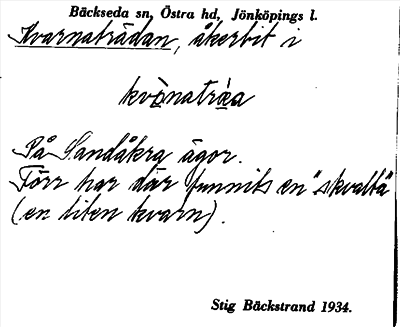 Bäckseda sn, Östra hd, Jönköpings l.
Kvarnaträdan, åkerbit i
kvὰnatrᶏa
På Sandåkra ägor.
Förr har där funnits en "skvalta"
(en liten kvarn).
Stig Bäckstrand 1934.